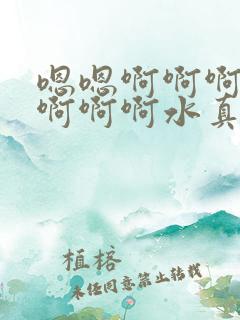 嗯嗯啊啊啊
啊啊啊水真
植榕
未经同意禁止转载